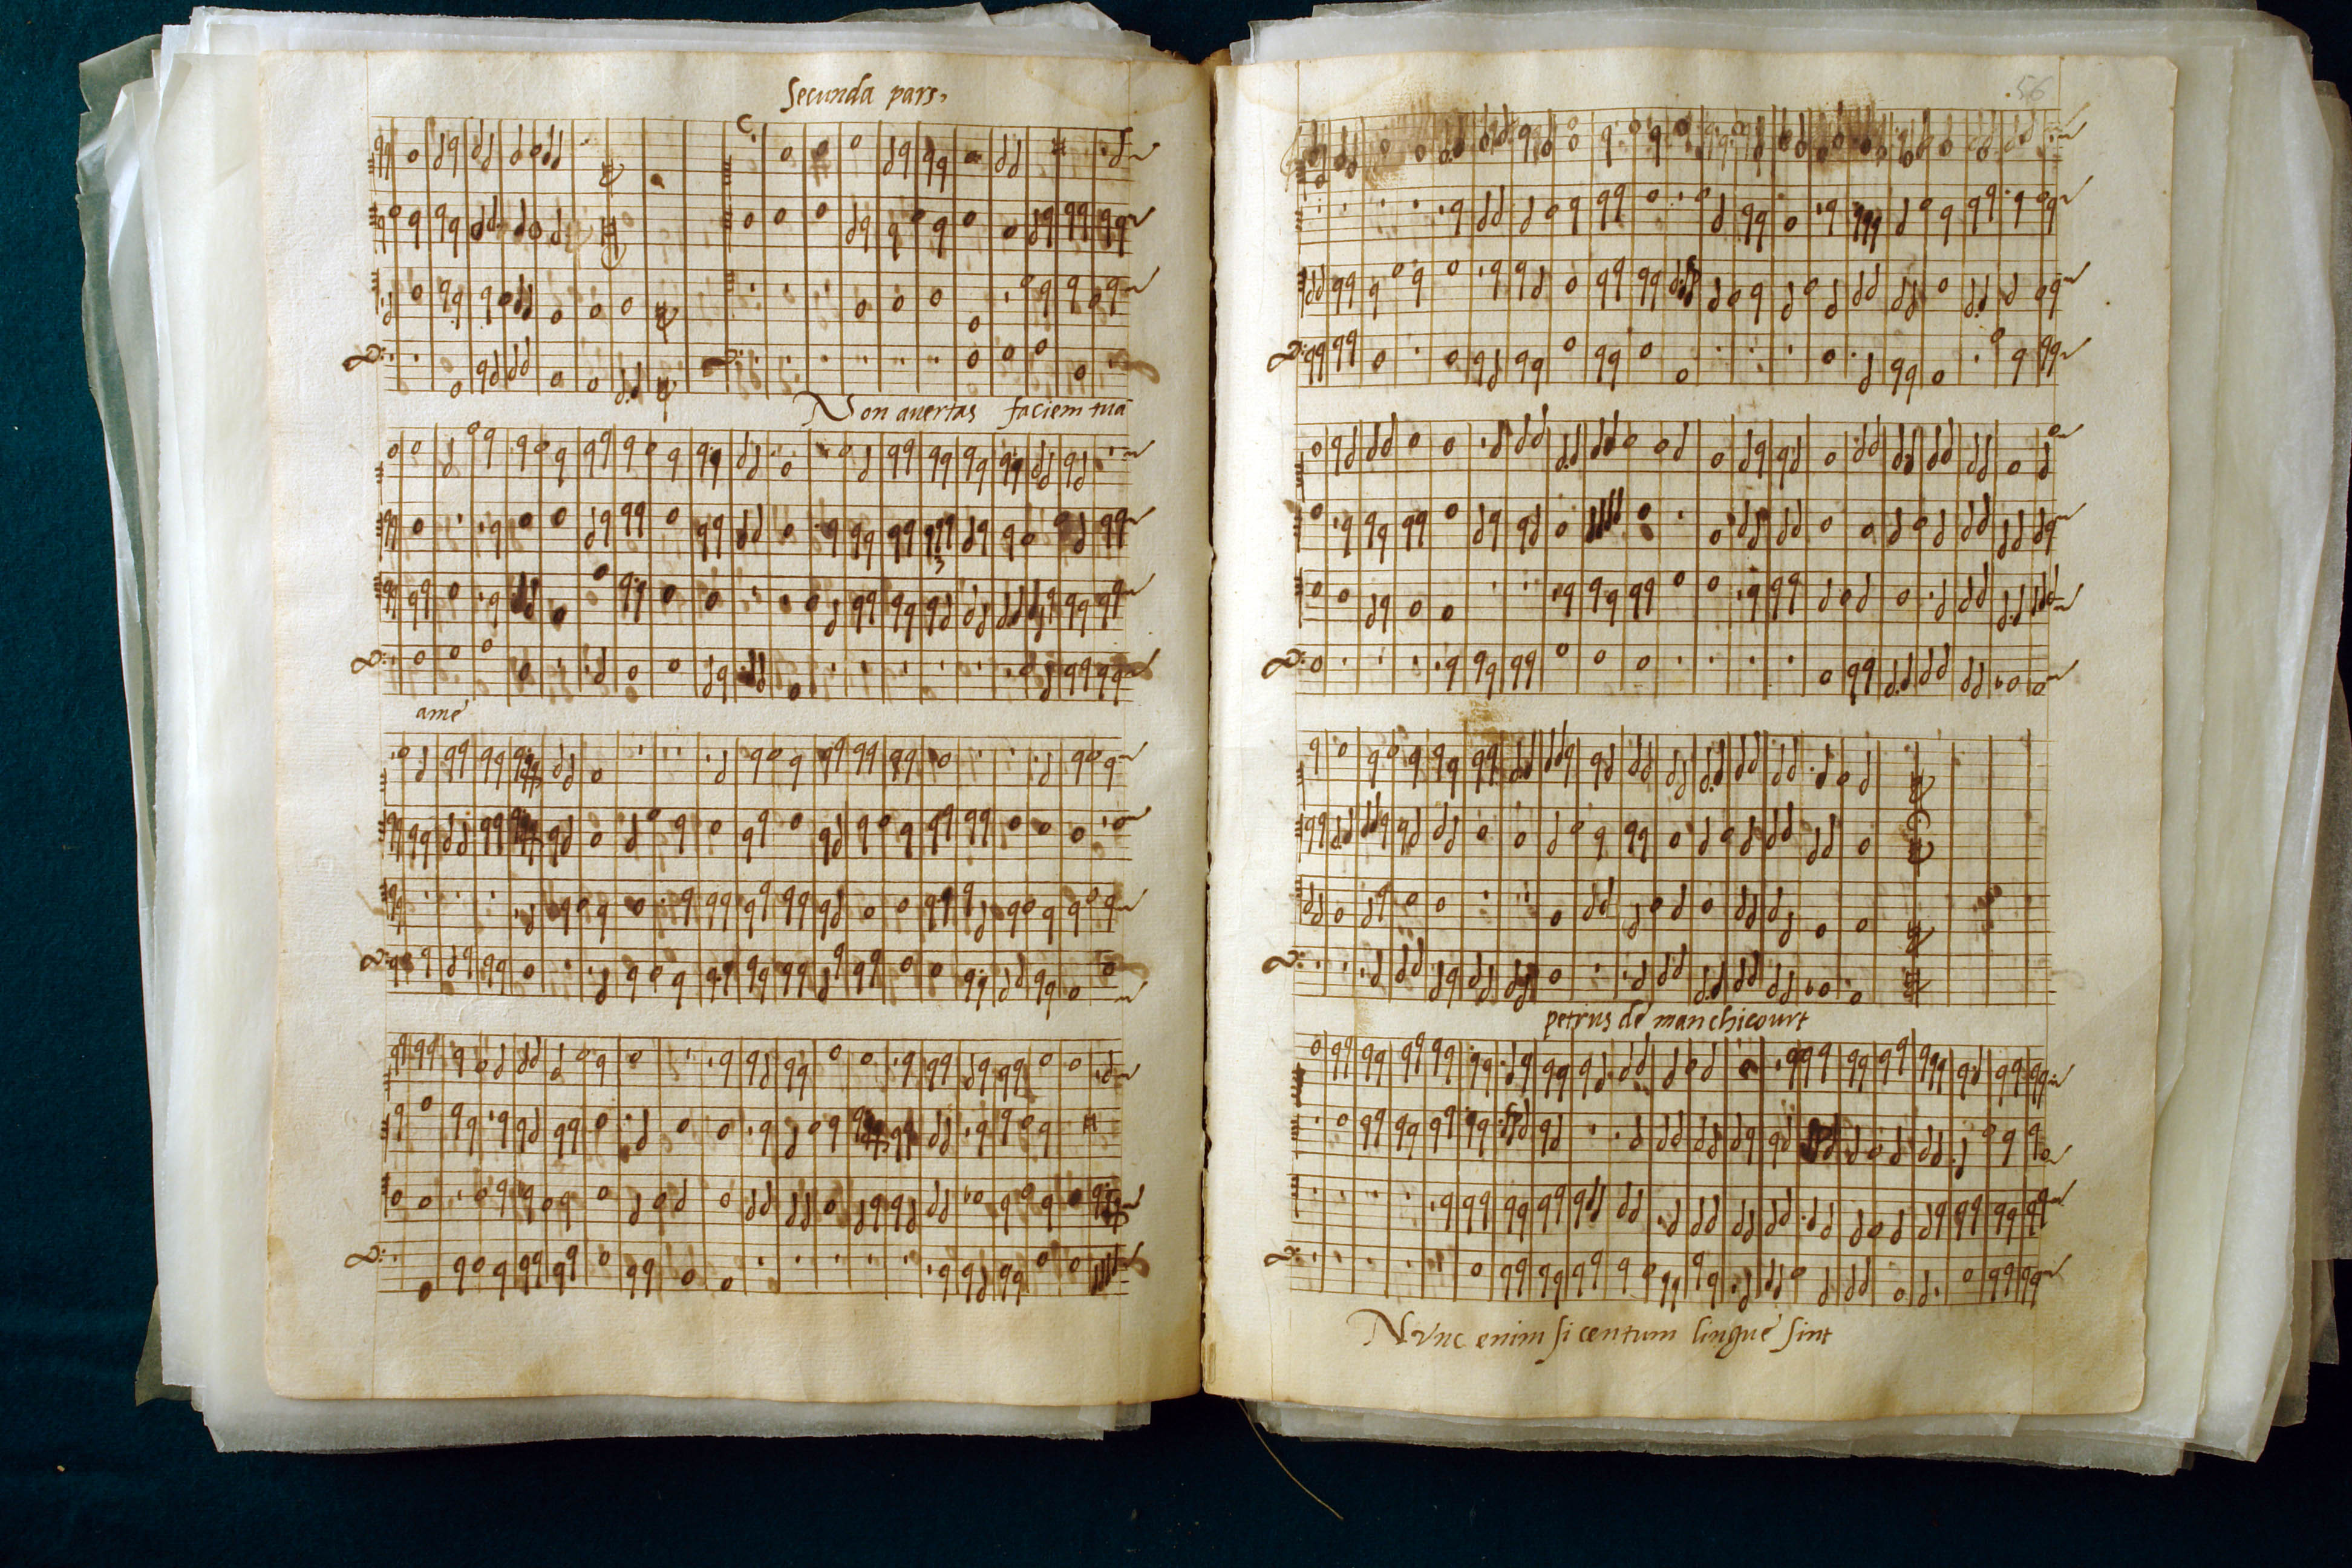 Secunda pars,
Non auertas faciem tuā
amé
.56
petrus de manchicourt
Nunc enim si centum lingue sint